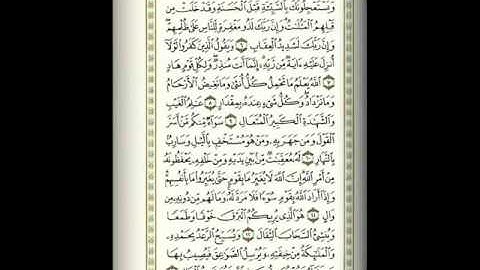 وَيَسْتَعْجِلُونَكَ بِالسَّيِّئَةِ قَبْلَ الْحَسَنَةِ وَقَدْ خَلَتْ مِن
قَبْلِهِمُ الْمَثُلَاتُ وَإِنَّ رَبَّكَ لَذُو مَغْفِرَةٍ لِّلنَّاسِ عَلَىٰ ظُلْمِهِمْ
وَإِنَّ رَبَّكَ لَشَدِيدُ الْعِقَابِ ۝٦ وَيَقُولُ الَّذِينَ كَفَرُوا لَوْلَا
أُنزِلَ عَلَيْهِ ءَايَةٌ مِّن رَّبِّهِ إِنَّمَا أَنتَ مُنذِرٌ وَلِكُلِّ قَوْمٍ هَادٍ
۝٧ اللَّهُ يَعْلَمُ مَا تَحْمِلُ كُلُّ أُنثَىٰ وَمَا تَغِيضُ الْأَرْحَامُ
وَمَا تَزْدَادُ وَكُلُّ شَيْءٍ عِندَهُ بِمِقْدَارٍ ۝٨ عَالِمُ الْغَيْبِ
وَالشَّهَادَةِ الْكَبِيرُ الْمُتَعَالِ ۝٩ سَوَاءٌ مِّنكُم مَّنْ أَسَرَّ
الْقَوْلَ وَمَن جَهَرَ بِهِ وَمَنْ هُوَ مُسْتَخْفٍ بِاللَّيْلِ وَسَارِبٌ
بِالنَّهَارِ ۝١٠ لَهُ مُعَقِّبَاتٌ مِّن بَيْنِ يَدَيْهِ وَمِنْ خَلْفِهِ يَحْفَظُونَهُ
مِنْ أَمْرِ اللَّهِ إِنَّ اللَّهَ لَا يُغَيِّرُ مَا بِقَوْمٍ حَتَّىٰ يُغَيِّرُوا مَا بِأَنفُسِهِمْ
وَإِذَا أَرَادَ اللَّهُ بِقَوْمٍ سُوءًا فَلَا مَرَدَّ لَهُ وَمَا لَهُم مِّن دُونِهِ مِن
وَالٍ ۝١١ هُوَ الَّذِي يُرِيكُمُ الْبَرْقَ خَوْفًا وَطَمَعًا
وَيُنشِئُ السَّحَابَ الثِّقَالَ ۝١٢ وَيُسَبِّحُ الرَّعْدُ بِحَمْدِهِ
وَالْمَلَائِكَةُ مِنْ خِيفَتِهِ وَيُرْسِلُ الصَّوَاعِقَ فَيُصِيبُ بِهَا